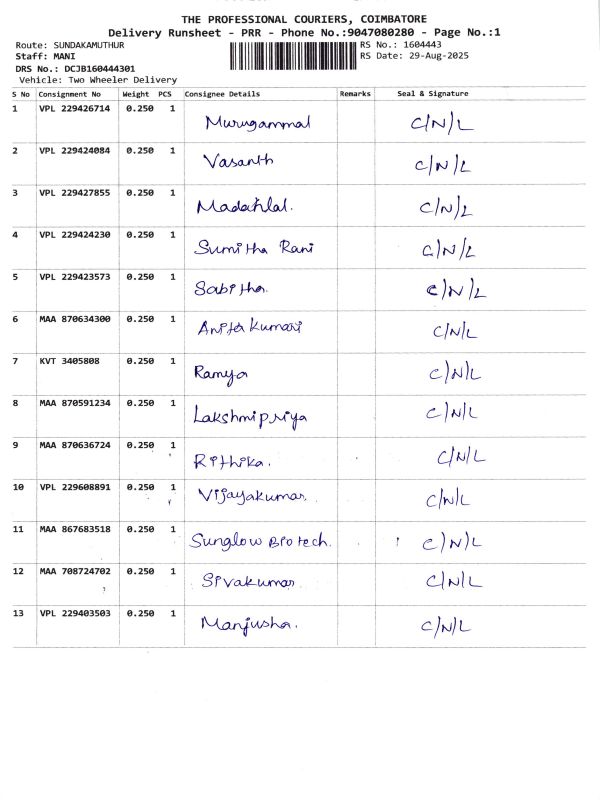 THE PROFESSIONAL COURIERS, COIMBATORE
Delivery Runsheet - PRR - Phone No.:9047080280 - Page No.:1
Route: SUNDAKAMUTHUR RS No.: 1604443
Staff: MANI RS Date: 29-Aug-2025
DRS No.: DCJB160444301
Vehicle: Two Wheeler Delivery
S No Consignment No Weight PCS Consignee Details Remarks Seal & Signature
1 VPL 229426714 0.250 1 Murugammal C/N/L
2 VPL 229424084 0.250 1 Vasanth C/N/L
3 VPL 229427855 0.250 1 Madahlal. C/N/L
4 VPL 229424230 0.250 1 Sumitha Rani C/N/L
5 VPL 229423573 0.250 1 Sabitha. C/N/L
6 MAA 870634300 0.250 1 Anita Kumari C/N/L
7 KVT 3405808 0.250 1 Ramya C/N/L
8 MAA 870591234 0.250 1 Lakshmipriya C/N/L
9 MAA 870636724 0.250 1 Rithika. C/N/L
10 VPL 229608891 0.250 1 Vijayakumar. C/N/L
11 MAA 867683518 0.250 1 Sunglow Biotech. C/N/L
12 MAA 708724702 0.250 1 Sivakumar. C/N/L
13 VPL 229403503 0.250 1 Manjusha. C/N/L